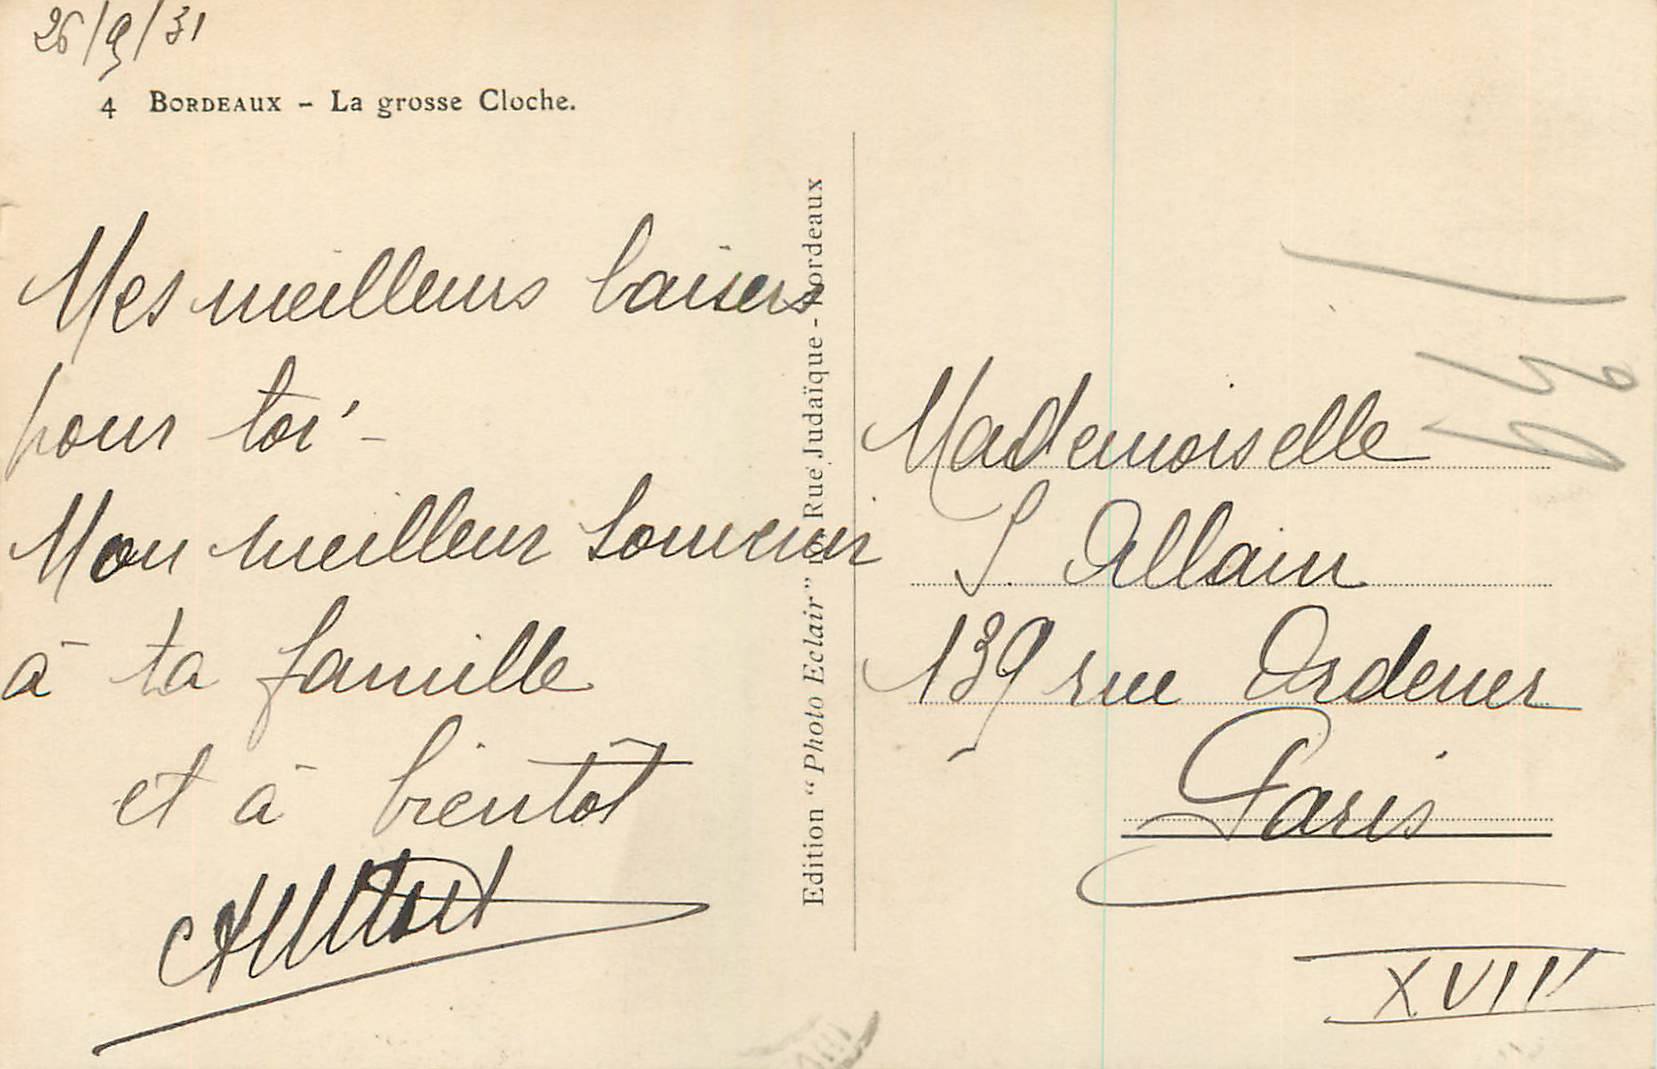 26/9/31
4 BORDEAUX - La grosse Cloche.
Mes meilleurs baisers
pour toi -
Mon meilleur souvenir
à ta famille
et à bientôt
Edition "Photo Eclair" Rue Judaïque - Bordeaux
139
Mademoiselle
S. Allain
139 rue Ordener
Paris
XVIII